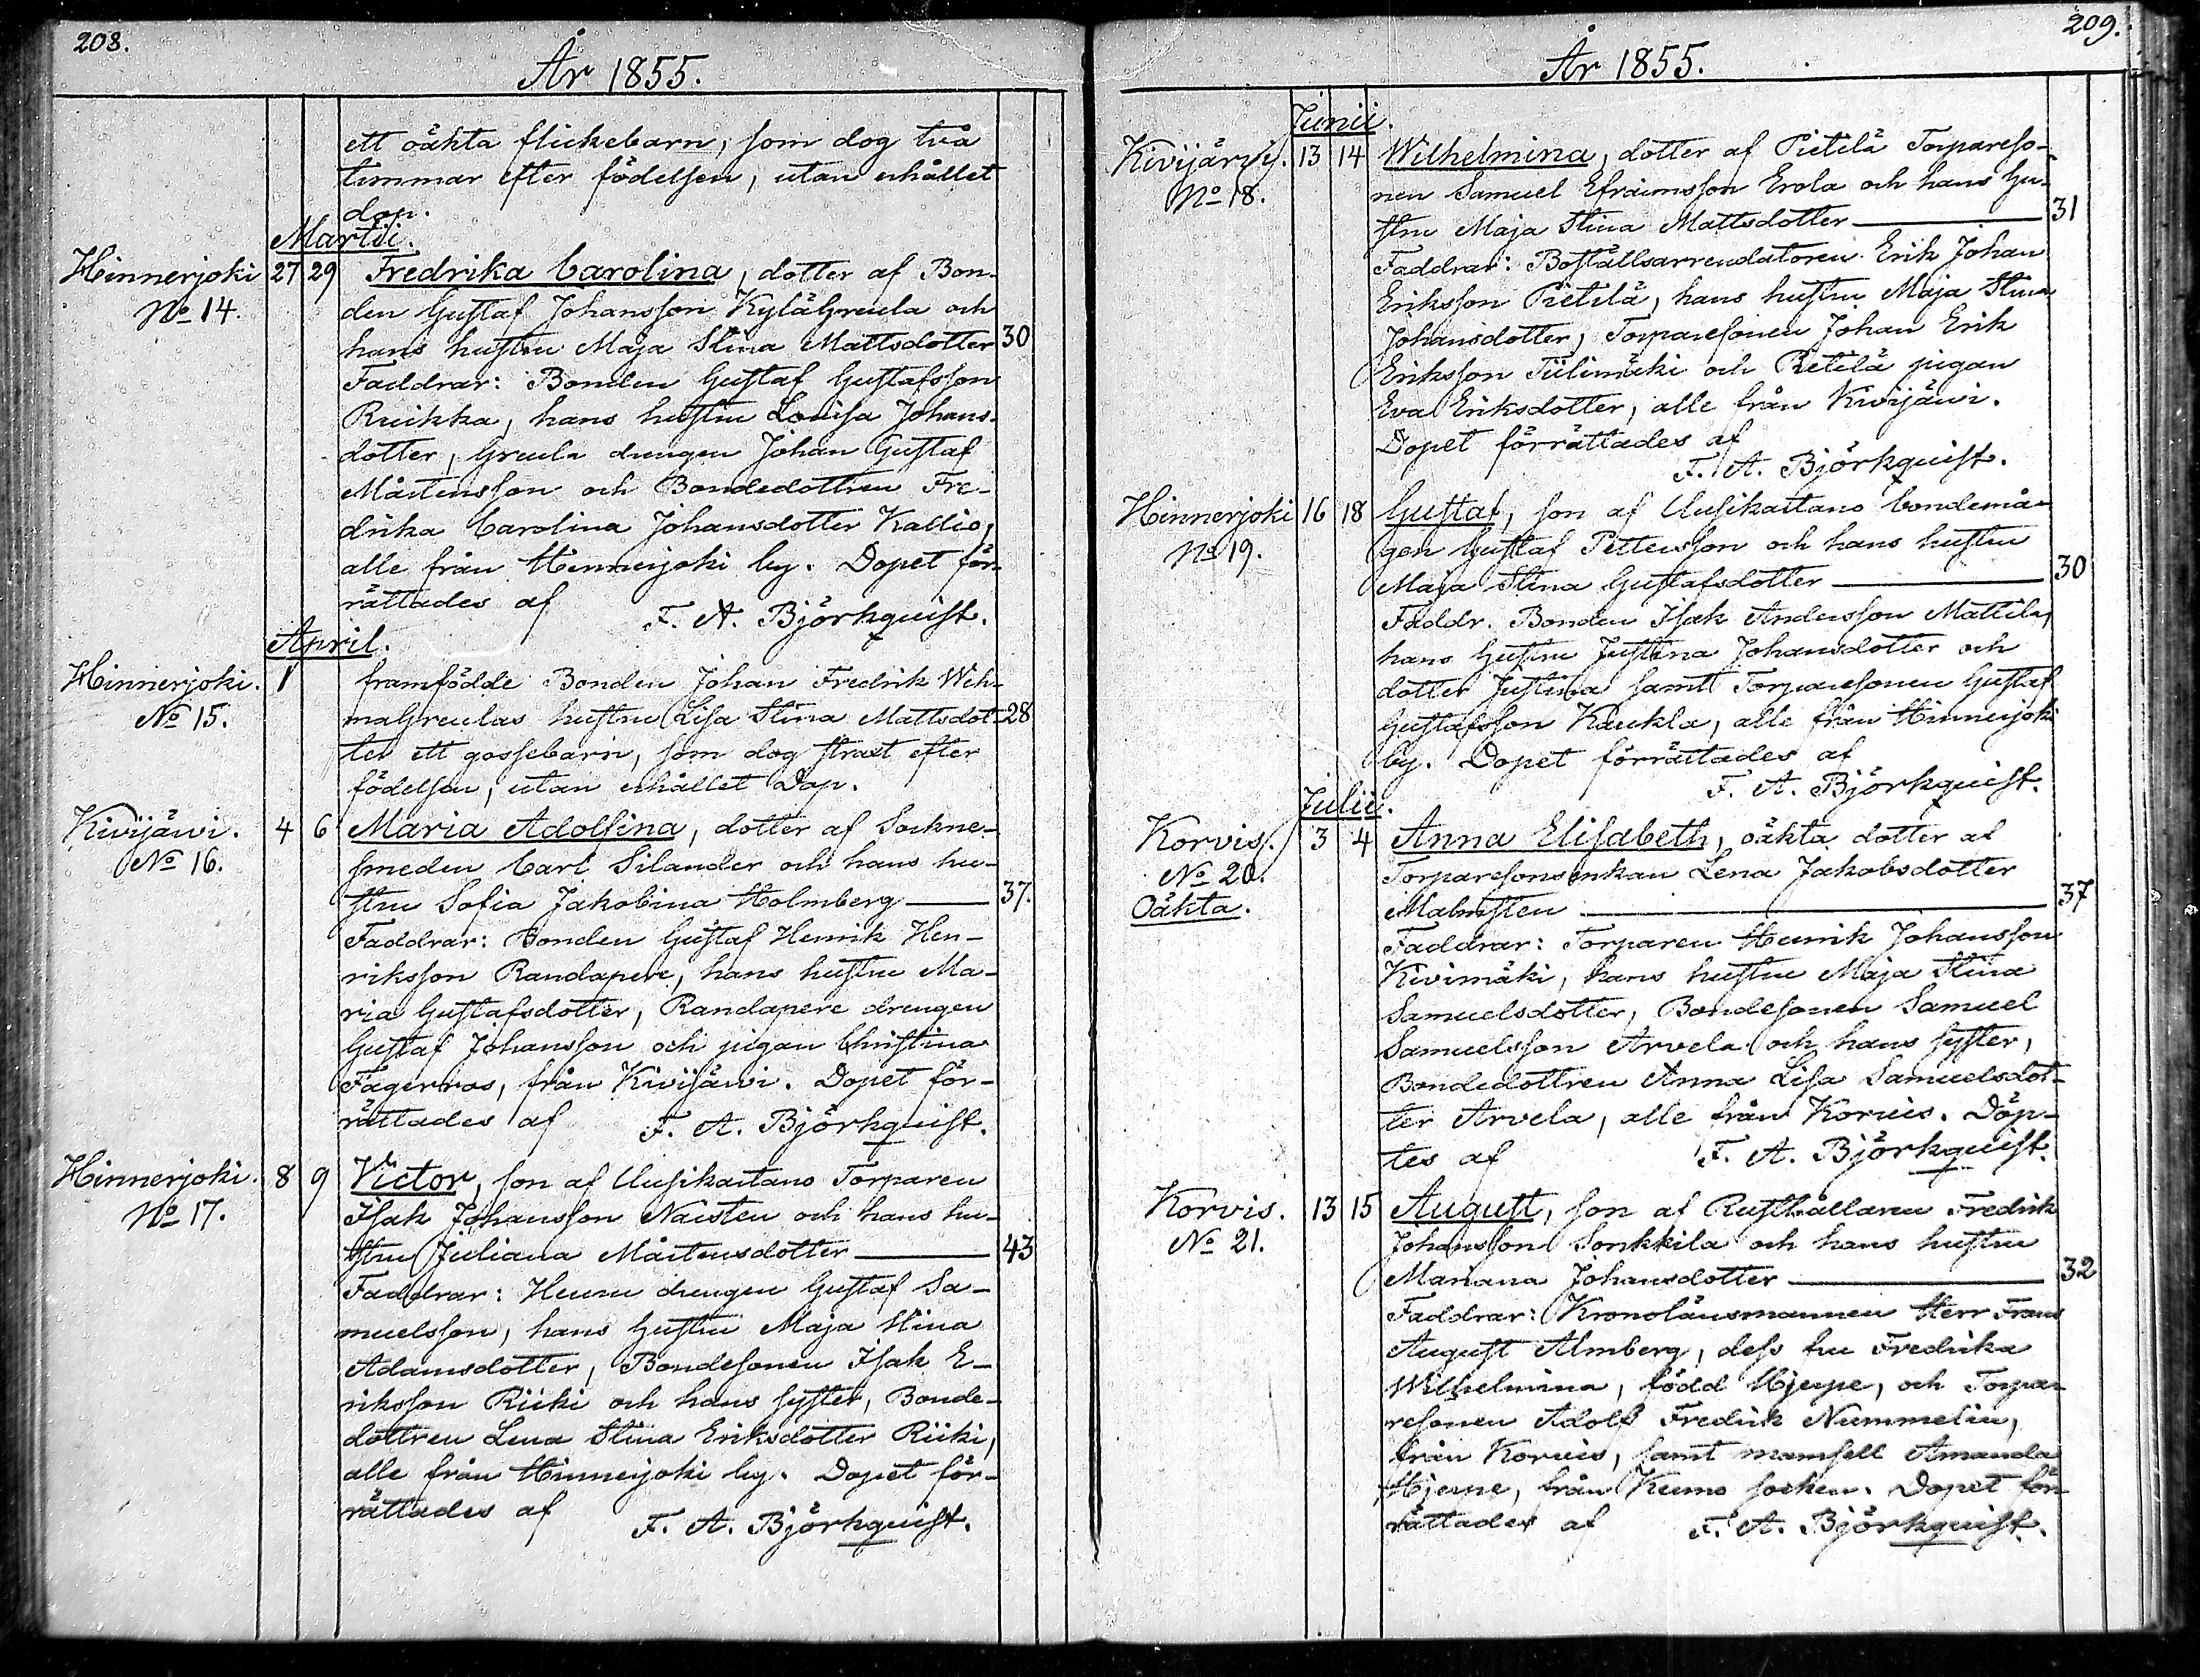 208.
År 1855.
ett oäkta flickebarn, som dog två
timmar efter födelsen, utan erhållet
dop.
Martii.
Hinnerjoki 27 29 Fredrika Carolina, dotter af Bon-
No 14. den Gustaf Johansson Kylägreula och
hans hustru Maja Stina Mattsdotter 30
Faddrar: Bonden Gustaf Gustafsson
Ruikka, hans hustru Lovisa Johans-
dotter, Greula drengen Johan Gustaf
Mårtensson och Bondedottren Fre-
drika Carolina Johansdotter Kallio,
alle från Hinnerjoki by. Dopet för-
rättades af F. A. Björkquist.
April.
Hinnerjoki. 1 framfödde Bonden Johan Fredrik Weh-
No 15. magreulas hustru Lisa Stina Mattsdot- 28
ter ett gossebarn, som dog straxt efter
födelsen, utan erhållet Dop.
Kivijärvi. 4 6 Maria Adolfina, dotter af Sockne-
No 16. smeden Carl Silander och hans hu-
stru Sofia Jakobina Holmberg 37.
Faddrar: Bonden Gustaf Henrik Hen-
riksson Randapere, hans hustru Ma-
ria Gustafsdotter, Randapere drengen
Gustaf Johansson och pigan Christina
Fagerroos, från Kivijärvi. Dopet för-
rättades af F. A. Björkquist.
Hinnerjoki. 8 9 Victor, son af Uusikartano Torparen
No 17. Isak Johansson Naisten och hans hu-
stru Juliana Mårtensdotter 43
Faddrar: Hemu drengen Gustaf Sa-
muelsson, hans hustru Maja Stina
Adamsdotter, Bondesonen Isak E-
riksson Riiki och hans syster, Bonde-
dottren Lena Stina Eriksdotter Riiki,
alle från Hinnerjoki by. Dopet för-
rättades af F. A. Björkquist.
209.
År 1855.
Junii.
Kivijärvi. 13 14 Wilhelmina, dotter af Pietilä Torpareso-
No 18. nen Samuel Efraimsson Erola och hans hu-
stru Maja Stina Mattsdotter 31
Faddrar: Boställsarrendatoren Erik Johan
Eriksson Pietilä, hans hustru Maja Stina
Johansdotter, Torparesonen Johan Erik
Eriksson Tiilimäki och Pietilä pigan
Eva Eriksdotter, alle från Kivijärvi.
Dopet förrättades af
F. A. Björkquist.
Hinnerjoki 16 18 Gustaf, son af Uusikartano bondemå-
No 19. gen Gustaf Pettersson och hans hustru
Maja Stina Gustafsdotter 30
Faddr. Bonden Isak Andersson Mattila,
hans hustru Justina Johansdotter och
dotter Justina samt Torparesonen Gustaf
Gustafsson Kaukla, alle från Hinnerjoki
by. Dopet förrättades af
F. A. Björkquist.
Julii.
Korvis. 3 4 Anna Elisabeth, oäkta dotter af
No 20. Torparesonsenkan Lena Jakobsdotter
Oäkta. Malmsten 37
Faddrar: Torparen Henrik Johansson
Kivimäki, hans hustru Maja Stina
Samuelsdotter, Bondesonen Samuel
Samuelsson Arvela och hans syster,
Bondedottren Anna Lisa Samuelsdot-
ter Arvela, alle från Korvis. Döp-
tes af F. A. Björkquist.
Korvis. 13 15 August, son af Rusthållaren Fredrik
No 21. Johansson Sonkkila och hans hustru
Mariana Johansdotter 32
Faddrar: Kronolänsmannen Herr Frans
August Almberg, dess fru Fredrika
Wilhelmina, född Hjerpe, och Torpa-
resonen Adolf Fredrik Nummelin,
från Korvis, samt mamsell Amanda
Hjerpe, från Kumo socken. Dopet för-
rättades af F. A. Björkquist.